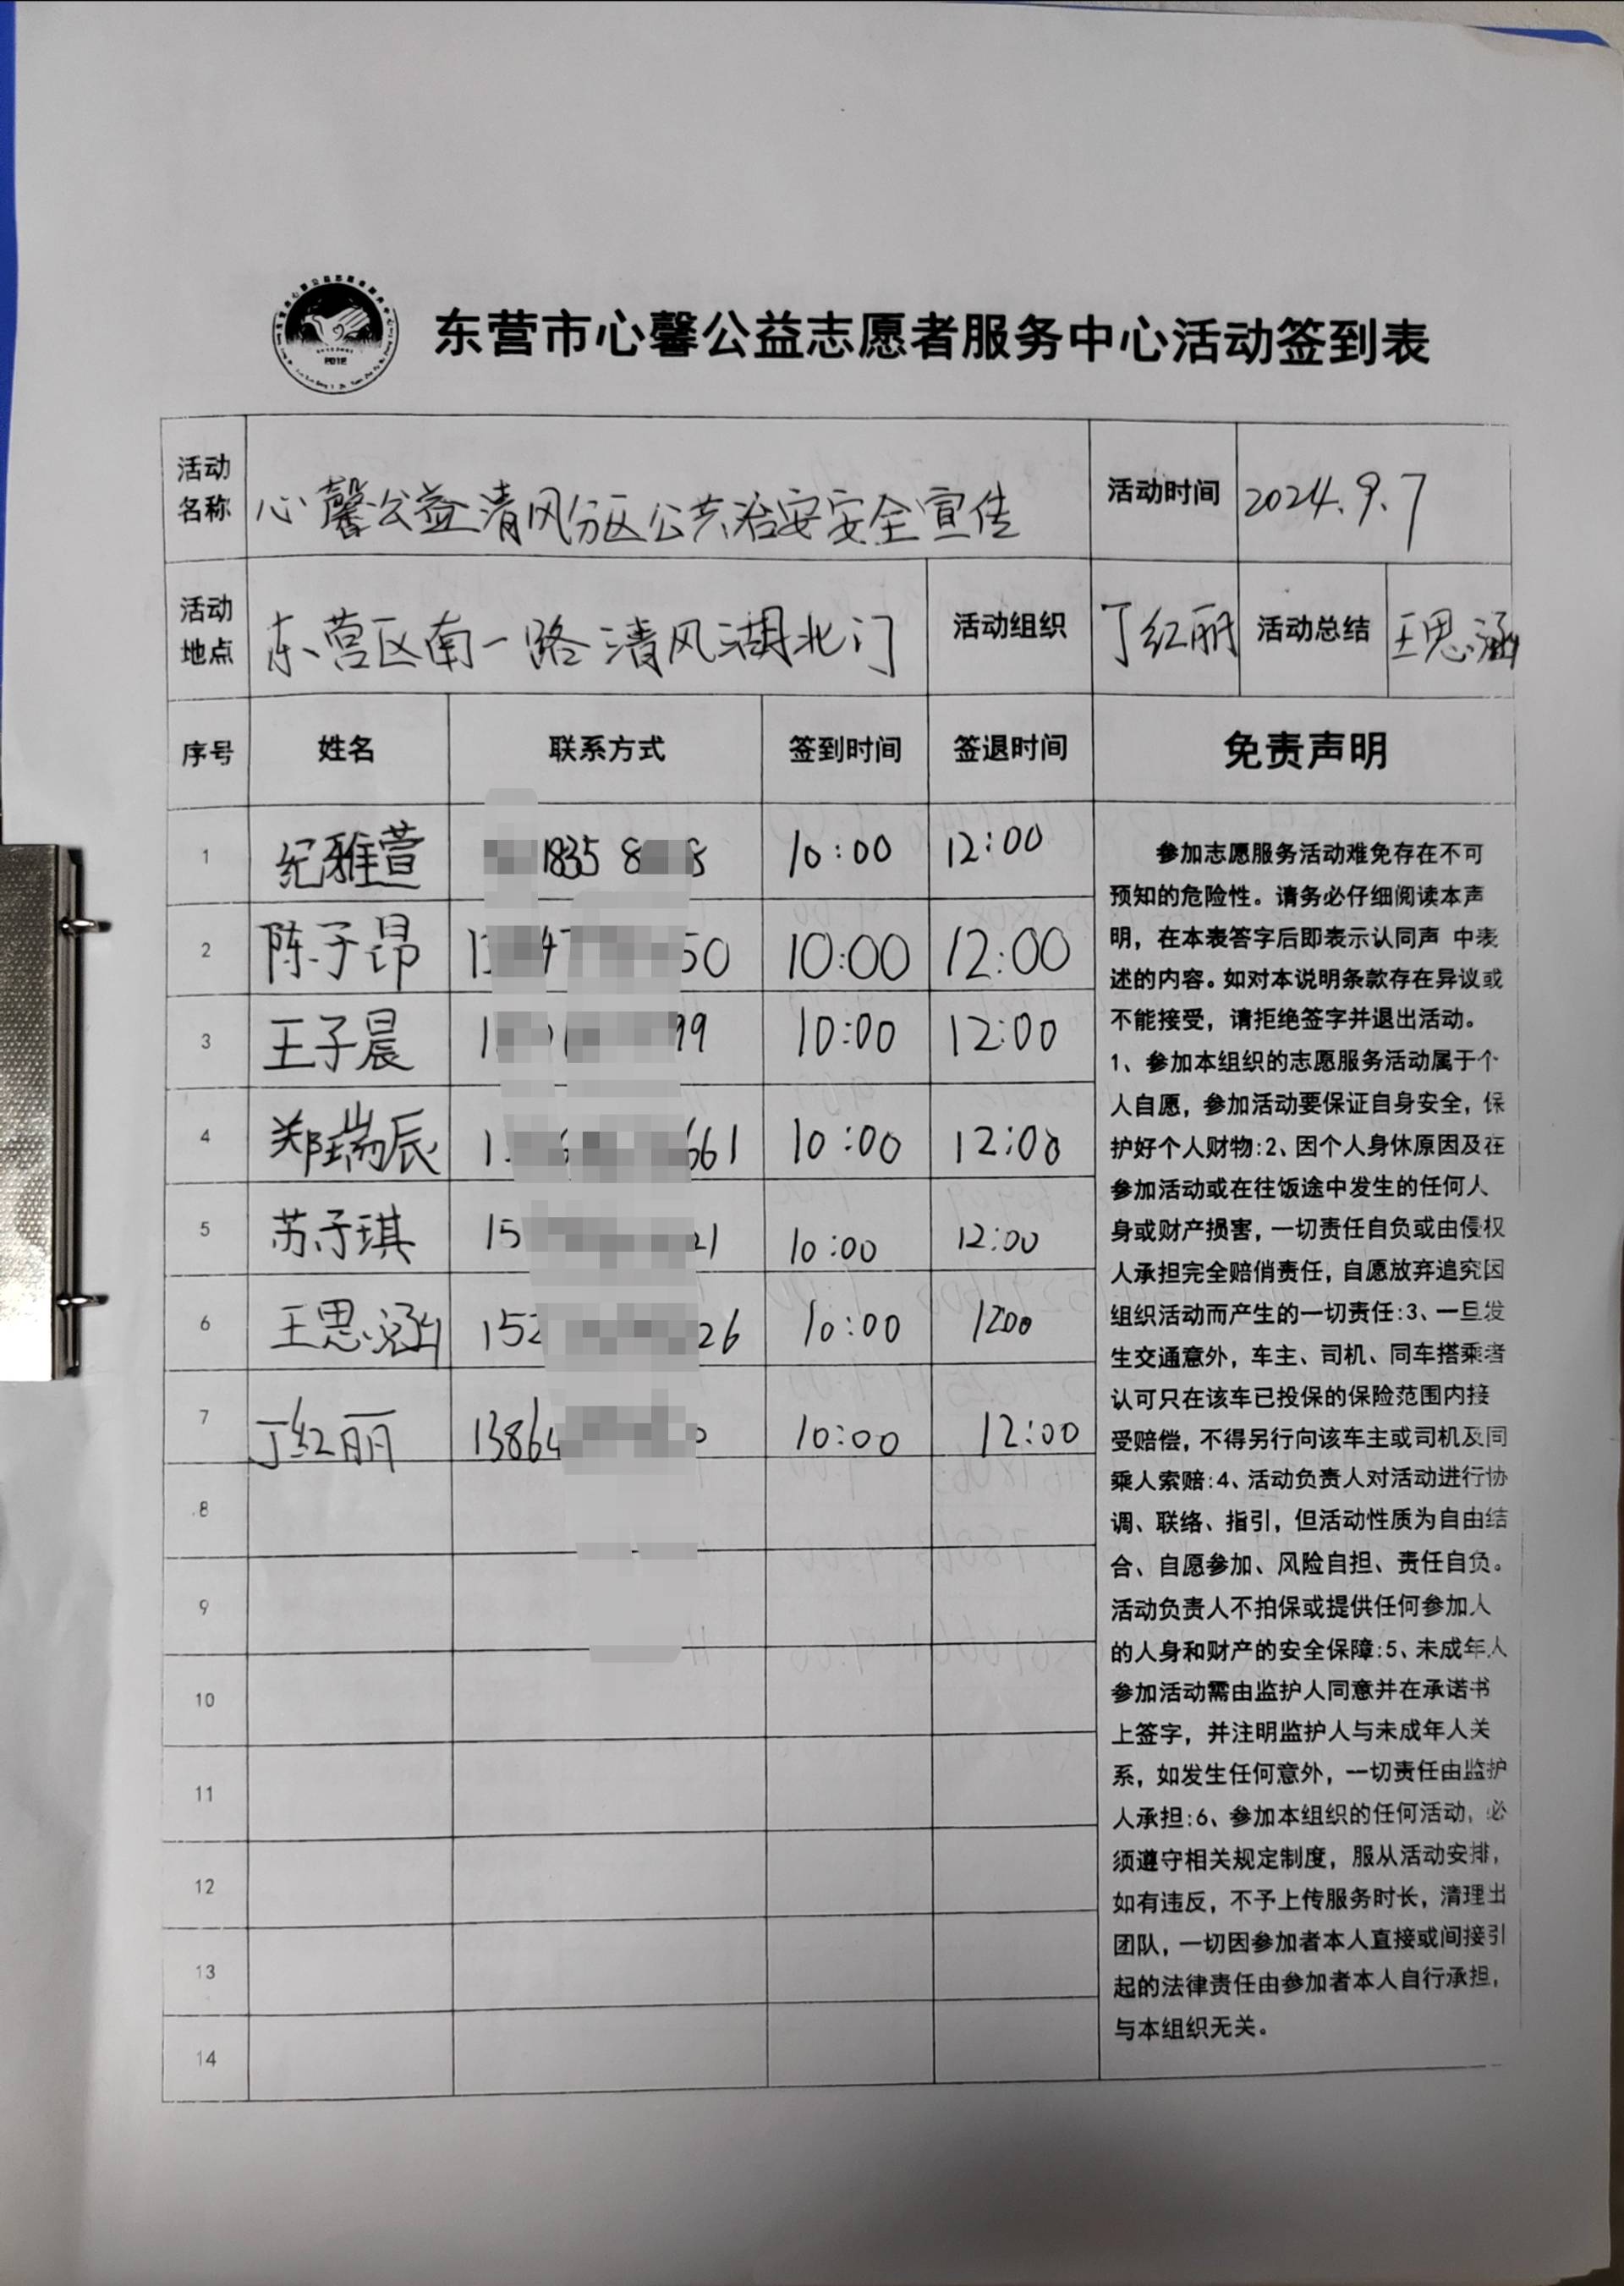 东营市心馨公益志愿者服务中心活动签到表
2012
活动名称 心馨公益清风分区公共治安安全宣传 活动时间 2024.9.7
活动地点 东营区南一路清风湖北门 活动组织 丁红丽 活动总结 王思涵
序号 姓名 联系方式 签到时间 签退时间 免责声明
1 纪雅萱 1835 8 8 10:00 12:00
2 陈子昂 1 47 50 10:00 12:00
3 王子晨 1 99 10:00 12:00
4 郑瑞辰 1 661 10:00 12:00
5 苏子琪 15 21 10:00 12:00
6 王思涵 152 26 10:00 1200
7 丁红丽 1386 10:00 12:00
8
9
10
11
12
13
14
参加志愿服务活动难免存在不可
预知的危险性。请务必仔细阅读本声
明，在本表答字后即表示认同声 中表
述的内容。如对本说明条款存在异议或
不能接受，请拒绝签字并退出活动。
1、参加本组织的志愿服务活动属于个
人自愿，参加活动要保证自身安全，保
护好个人财物:2、因个人身休原因及在
参加活动或在往饭途中发生的任何人
身或财产损害，一切责任自负或由侵权
人承担完全赔俏责任，自愿放弃追究因
组织活动而产生的一切责任:3、一旦发
生交通意外，车主、司机、同车搭乘者
认可只在该车已投保的保险范围内接
受赔偿，不得另行向该车主或司机及同
乘人索赔:4、活动负责人对活动进行协
调、联络、指引，但活动性质为自由结
合、自愿参加、风险自担、责任自负。
活动负责人不拍保或提供任何参加人
的人身和财产的安全保障:5、未成年人
参加活动需由监护人同意并在承诺书
上签字，并注明监护人与未成年人关
系，如发生任何意外，一切责任由监护
人承担:6、参加本组织的任何活动，必
须遵守相关规定制度，服从活动安排，
如有违反，不予上传服务时长，清理出
团队，一切因参加者本人直接或间接引
起的法律责任由参加者本人自行承担，
与本组织无关。